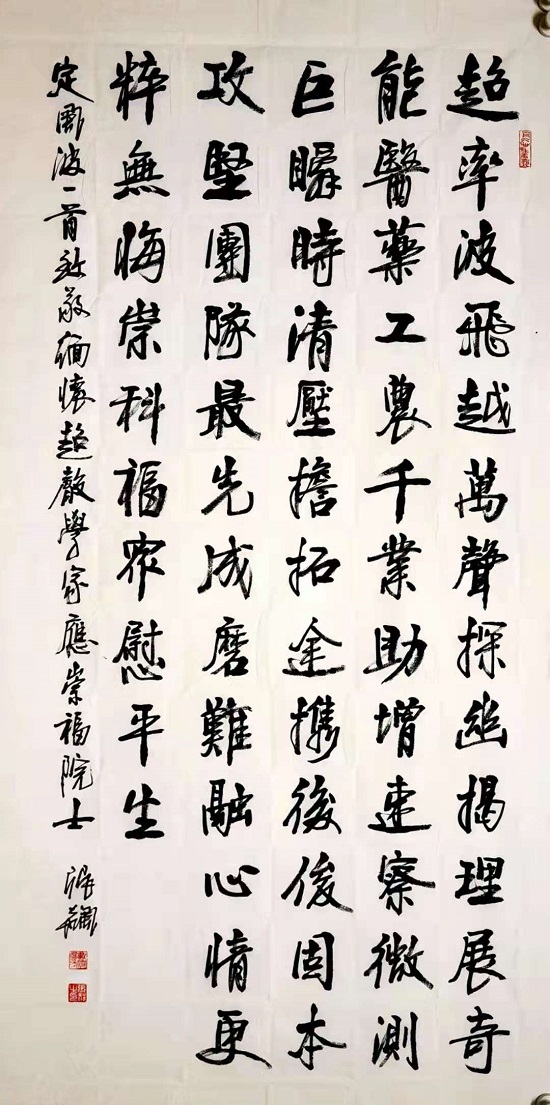 超率波飛越萬聲探幽揭理展奇
能醫藥工農千業助增速察微測
巨瞬時清壓擔拓途攜後俊固本
攻堅團隊最先成磨難融心情更
粹無悔崇科福眾慰平生
定風波一首致敬緬懷超聲學家應崇福院士